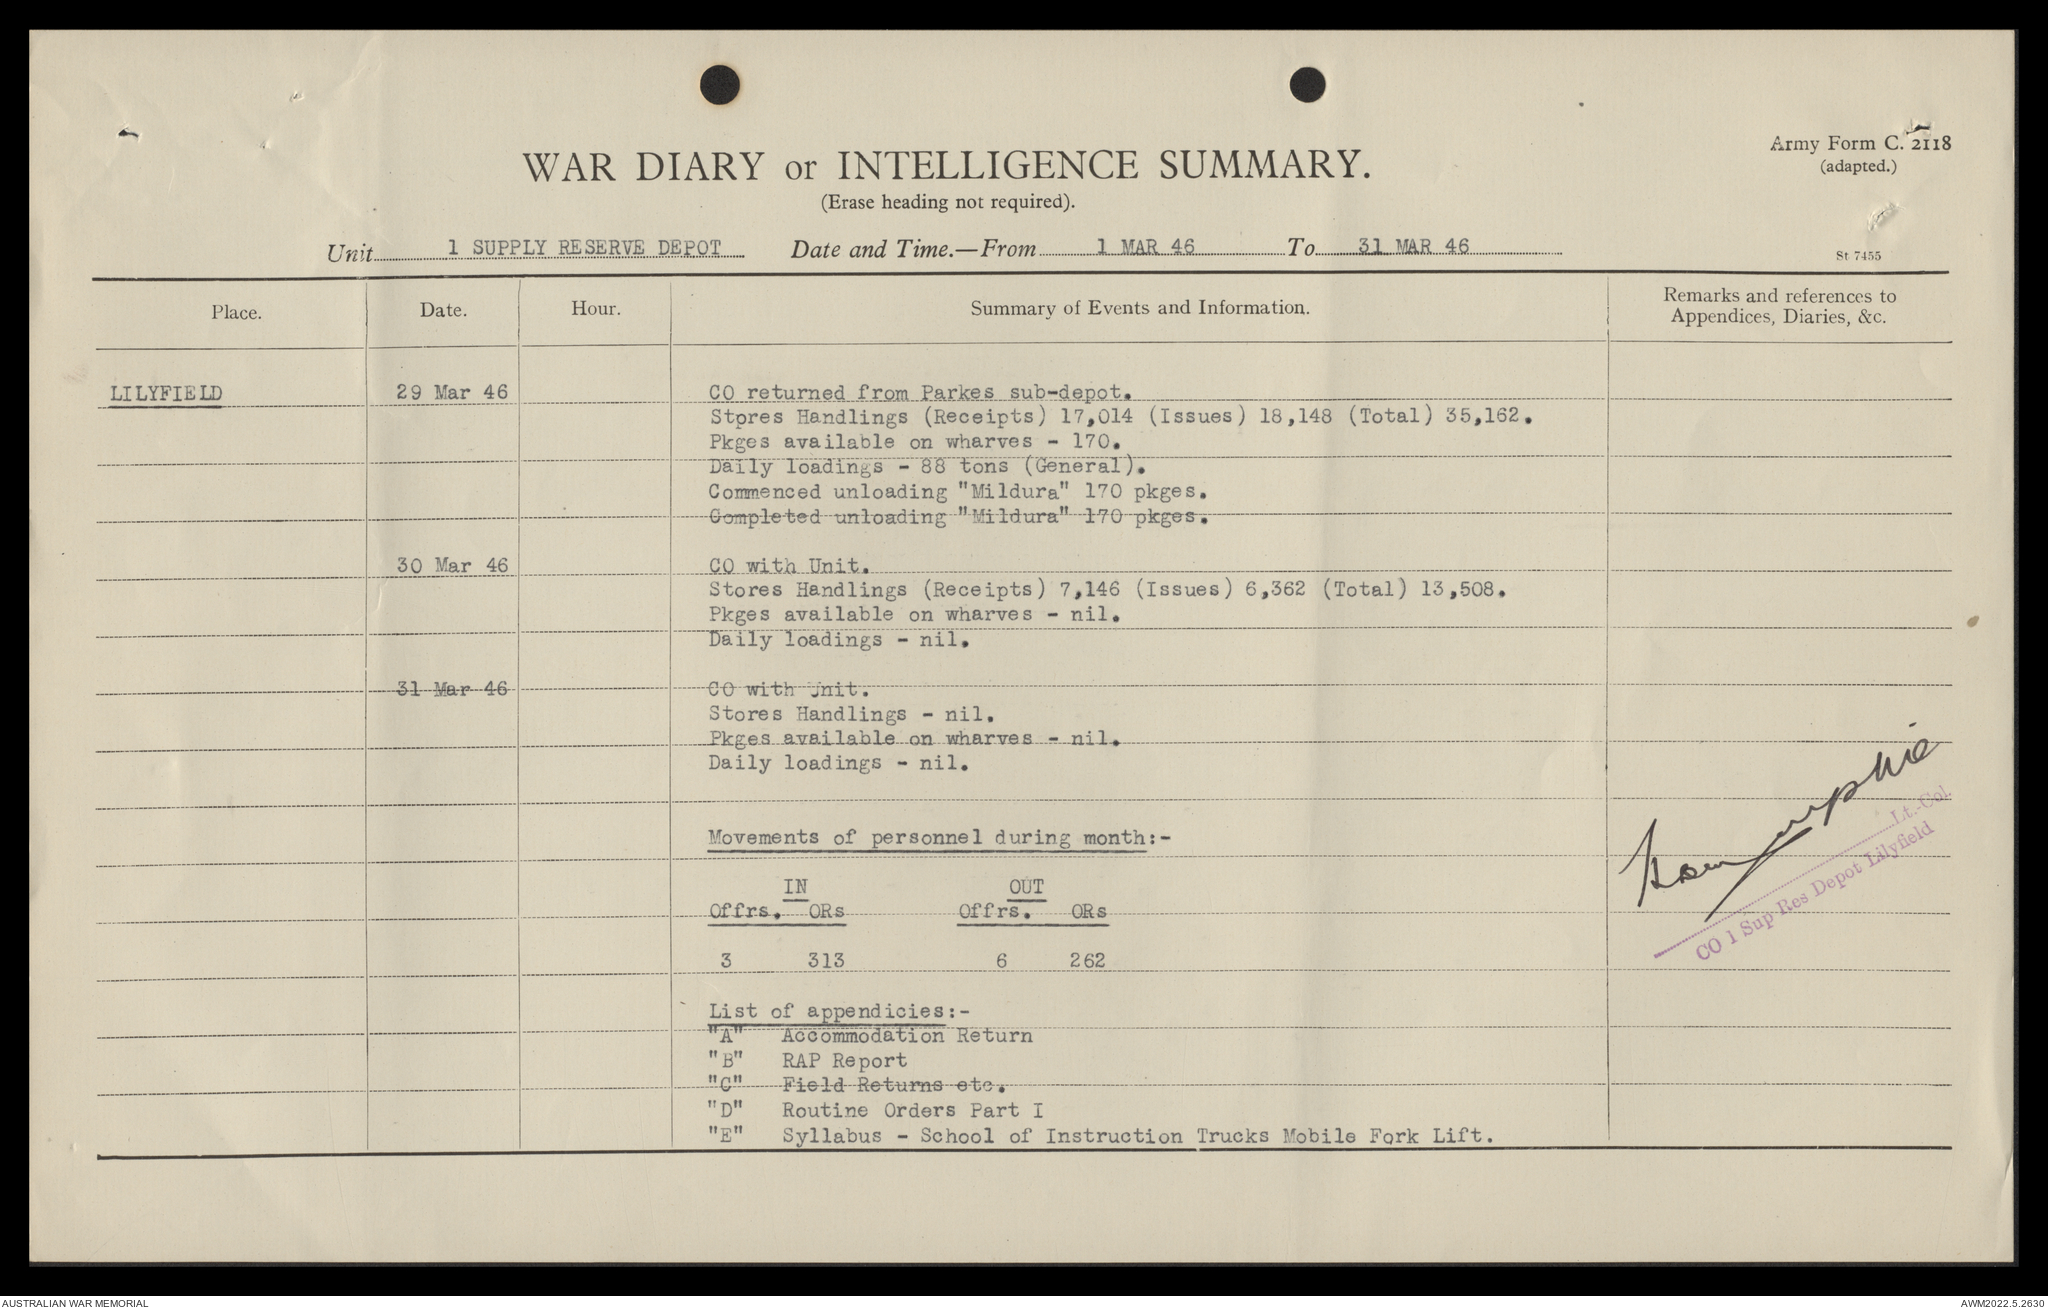 Army Form C. 2118
(adapted.)
WAR DIARY or INTELLIGENCE SUMMARY.
(Erase heading not required).
Unit 1 SUPPLY RESERVE DEPOT Date and Time.—From 1 MAR 46 To 31 MAR 46
St 7455
Place. Date. Hour. Summary of Events and Information. Remarks and references to Appendices, Diaries, &c.
LILYFIELD 29 Mar 46 CO returned from Parkes sub-depot.
Stores Handlings (Receipts) 17,014 (Issues) 18,148 (Total) 35,162.
Pkges available on wharves - 170.
Daily loadings - 88 tons (General).
Commenced unloading "Mildura" 170 pkges.
Completed unloading "Mildura" 170 pkges.
30 Mar 46 CO with Unit.
Stores Handlings (Receipts) 7,146 (Issues) 6,362 (Total) 13,508.
Pkges available on wharves - nil.
Daily loadings - nil.
31 Mar 46 CO with Unit.
Stores Handlings - nil.
Pkges available on wharves - nil.
Daily loadings - nil.
Movements of personnel during month:-
IN OUT
Offrs. ORs Offrs. ORs
3 313 6 262
Lt.-Col.
CO 1 Sup Res Depot Lilyfield
List of appendicies:-
"A" Accommodation Return
"B" RAP Report
"C" Field Returns etc.
"D" Routine Orders Part I
"E" Syllabus - School of Instruction Trucks Mobile Fork Lift.
AUSTRALIAN WAR MEMORIAL
AWM2022.5.2630